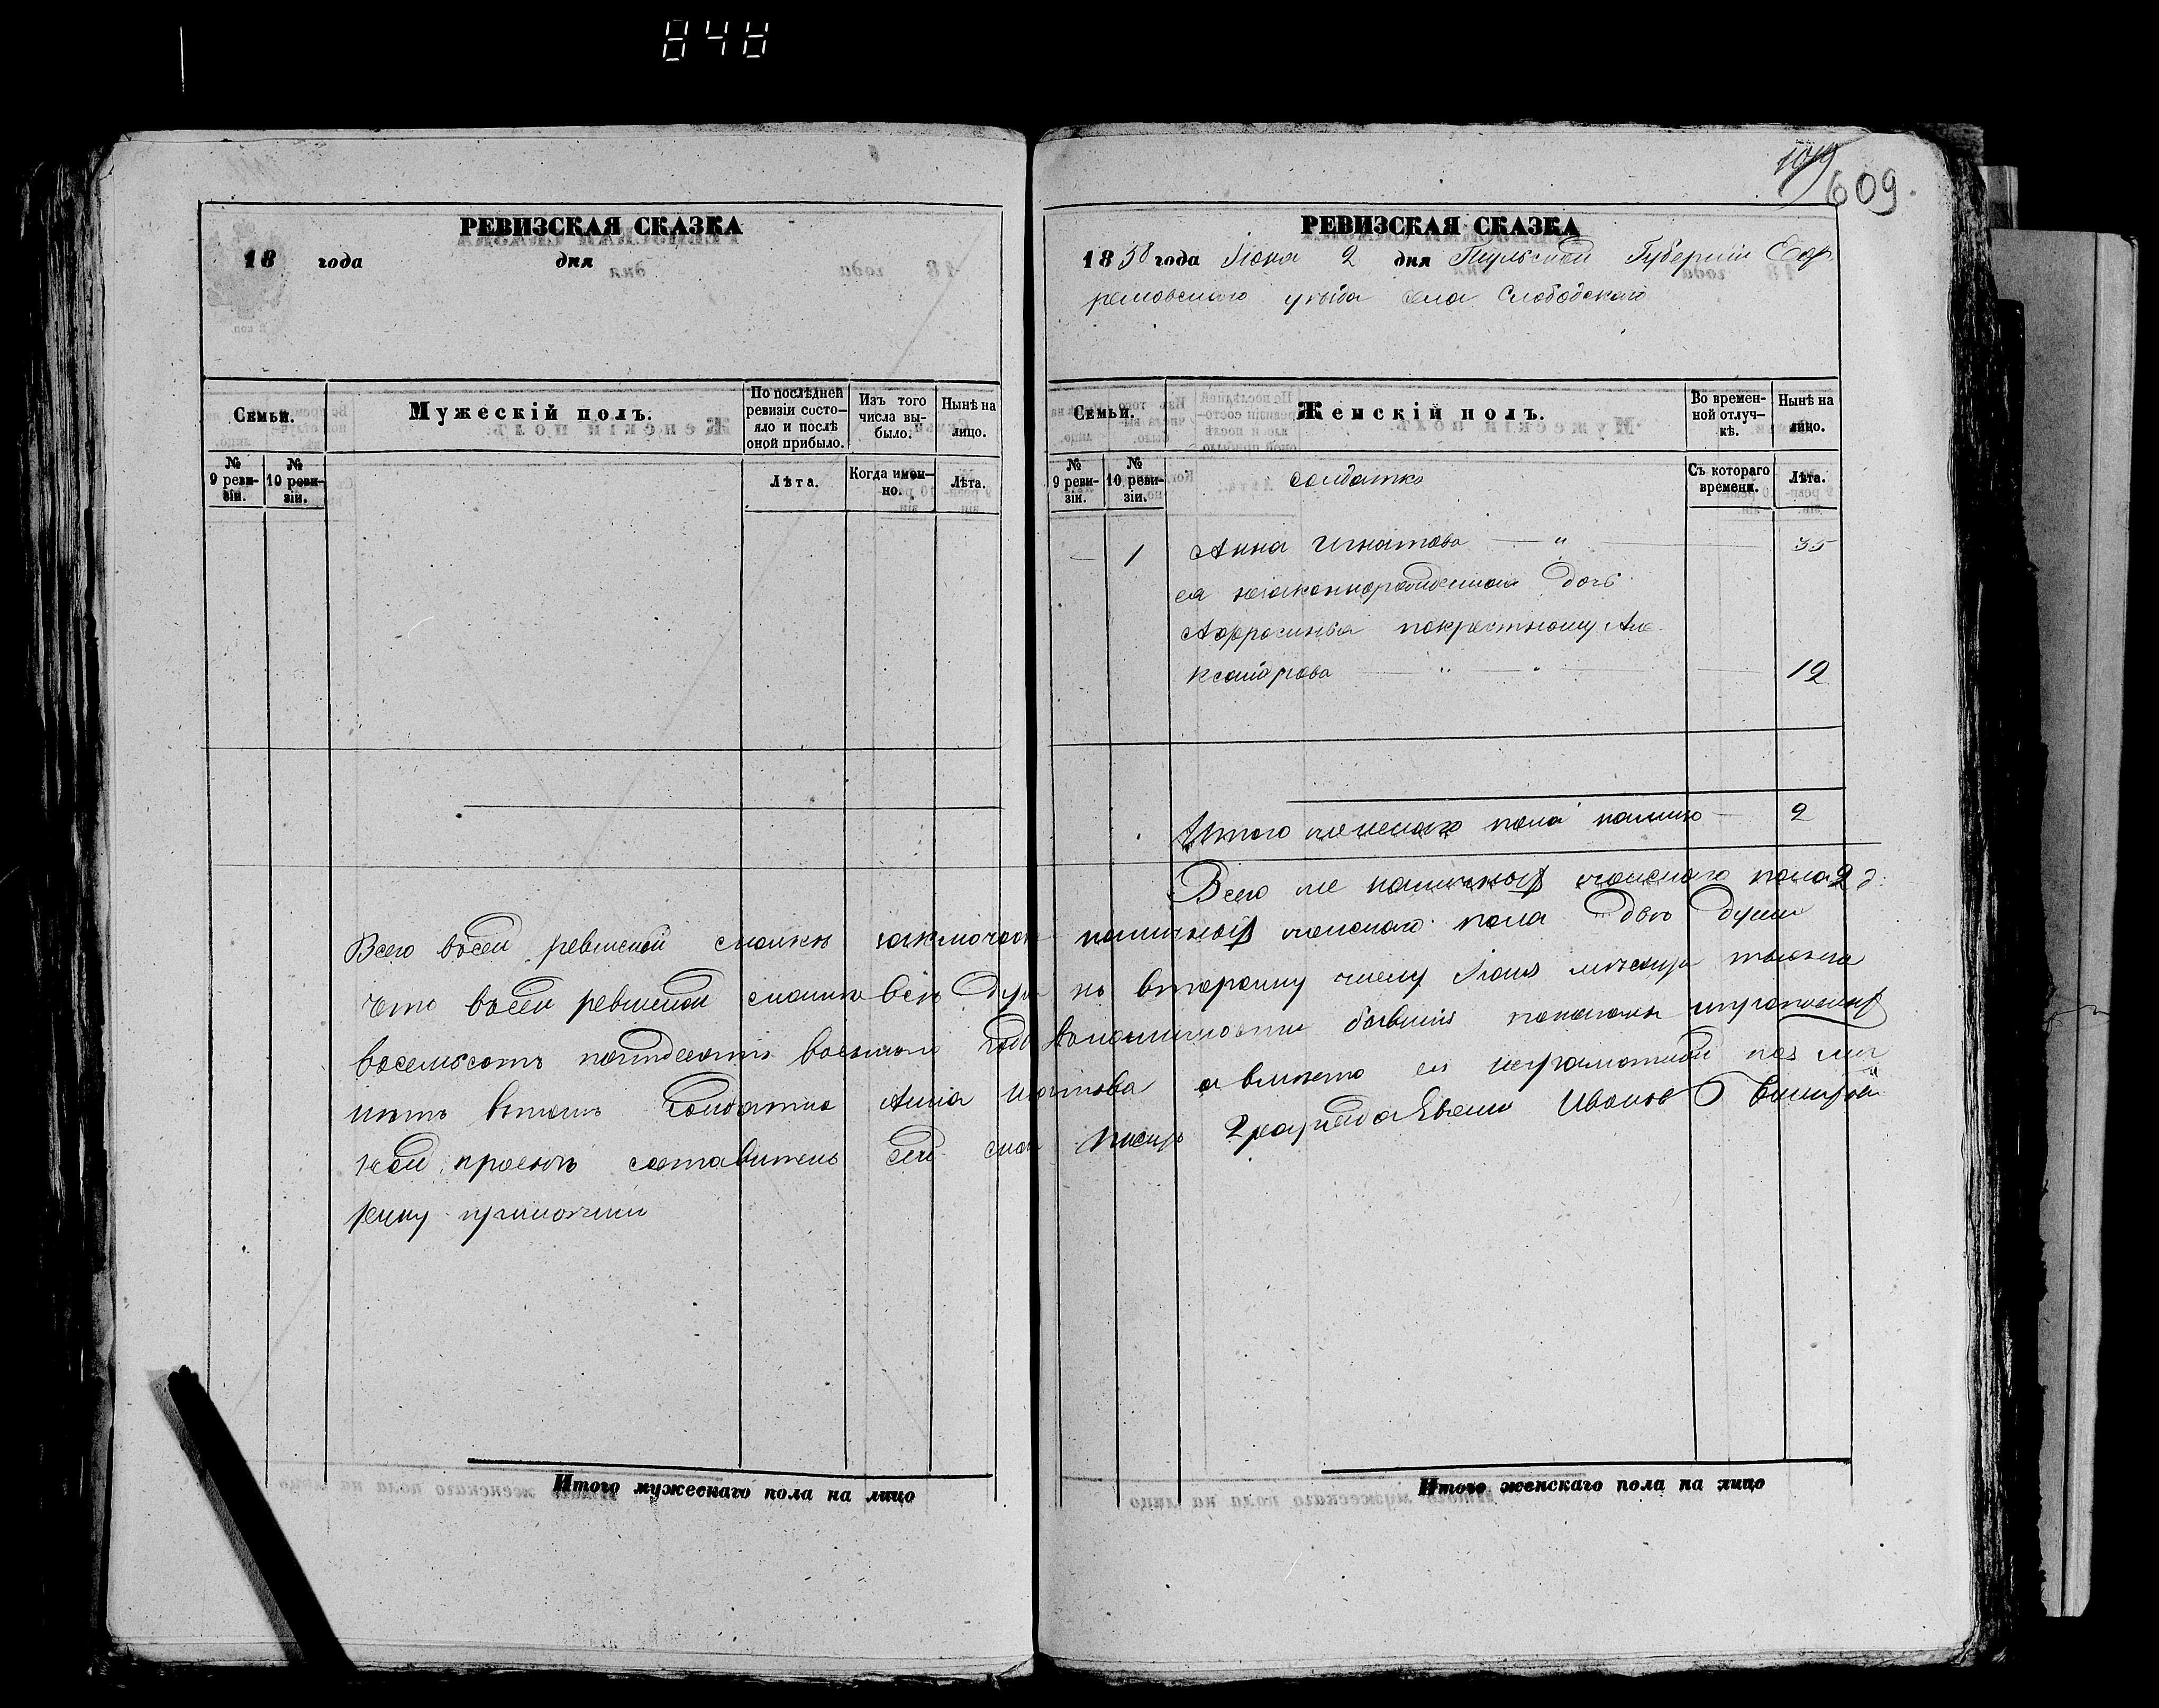 848
РЕВИЗСКАЯ СКАЗКА
18 года дня
Семьи.
Мужескій полъ.
По послѣдней ревизіи состо-
яло и послѣ оной прибыло.
Изъ того числа вы-
было.
Нынѣ на лицо.
№ 9 реви-
зіи.
№ 10 реви-
зіи.
Лѣта.
Когда имен-
но.
Лѣта.
Итого мужескаго пола на лицо
609.
РЕВИЗСКАЯ СКАЗКА
1858 года Іюня 2 дня Тульской Губерніи Ефр
ремовскаго уѣзда села Слободскаго
Семьи.
Женскій полъ.
Во времен-
ной отлуч-
кѣ.
Нынѣ на лицо.
№ 9 реви-
зіи.
№ 10 реви-
зіи.
солдатка
Съ котораго времени.
Лѣта.
1 Анна Игнатова — " 35
ея незаконнорожденная дочь
Афросинья покрестному Але
ксандрова — " — " 12
Итого женскаго пола налицо — 2
Всего же наличныхъ женскаго пола 2 д.
Всего въсей ревиской сказке заключается наличныхъ женскаго пола двѣ души
что въсей ревиской сказки всѣ души ко второму числу Іюня месяца тысяча
восемьсотъ пятдесятъ восьмаго года
солдатка Анна Игнатова а вместо ея неграмотной
Писецъ 2 разряда Иванъ
руку приложилъ
Итого женскаго пола на лицо